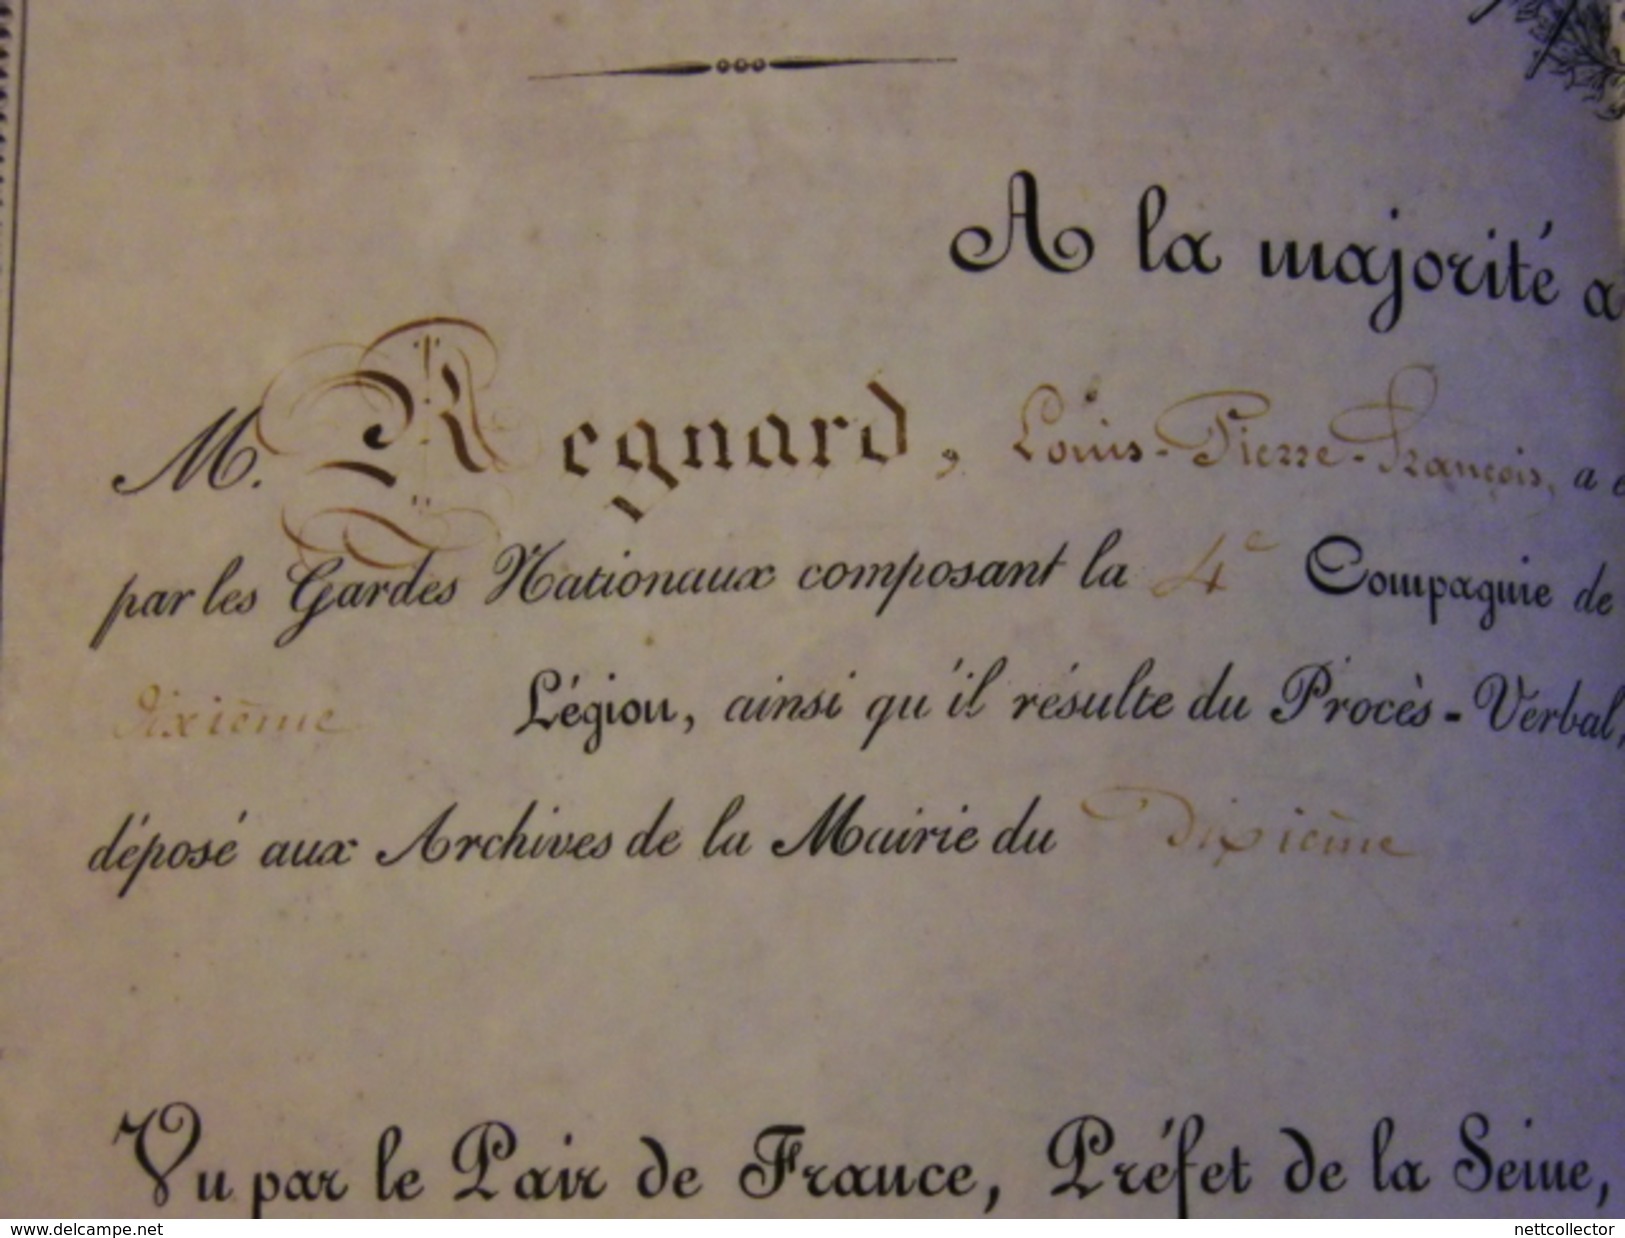 A la majorité a
M. Regnard, Louis-Pierre-François, a é
par les Gardes Nationaux composant la 4e Compagnie de
dixième Légion, ainsi qu'il résulte du Procès-Verbal,
déposé aux Archives de la Mairie du Dixième
Vu par le Pair de France, Préfet de la Seine,
www.delcampe.net nettcollector